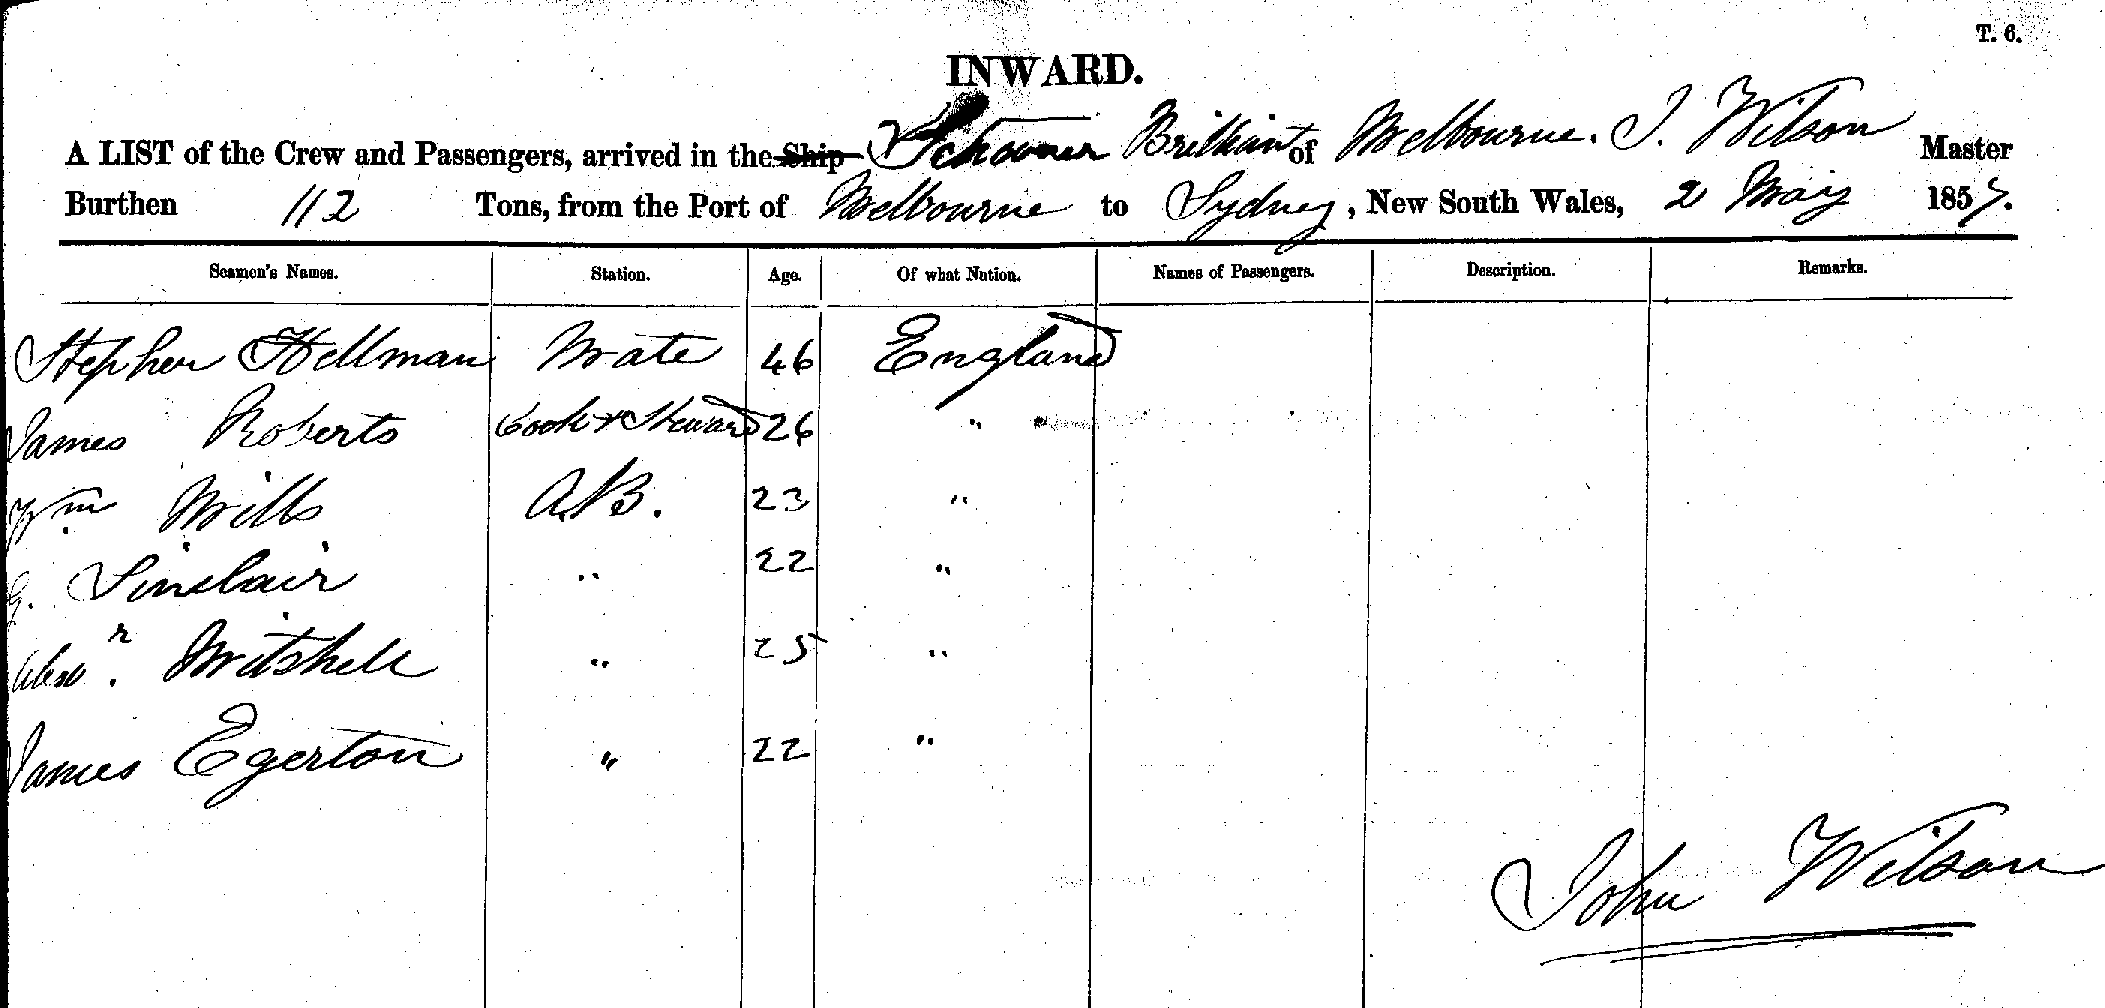 T. 6.
INWARD.
A LIST of the Crew and Passengers, arrived in the Ship Schooner Brilliant of Melbourne. J. Wilson Master
Burthen 112 Tons, from the Port of Melbourne to Sydney, New South Wales, 2 May 1857.
Seamen's Names. Station. Age. Of what Nation. Names of Passengers. Description. Remarks.
Stephen Hellman Mate 46 England
James Roberts Cook & Steward 26 "
Wm Mills A.B. 23 "
G. Sinclair " 22 "
Alexr. Mitshell " 25 "
James Egerton " 22 "
John Wilson